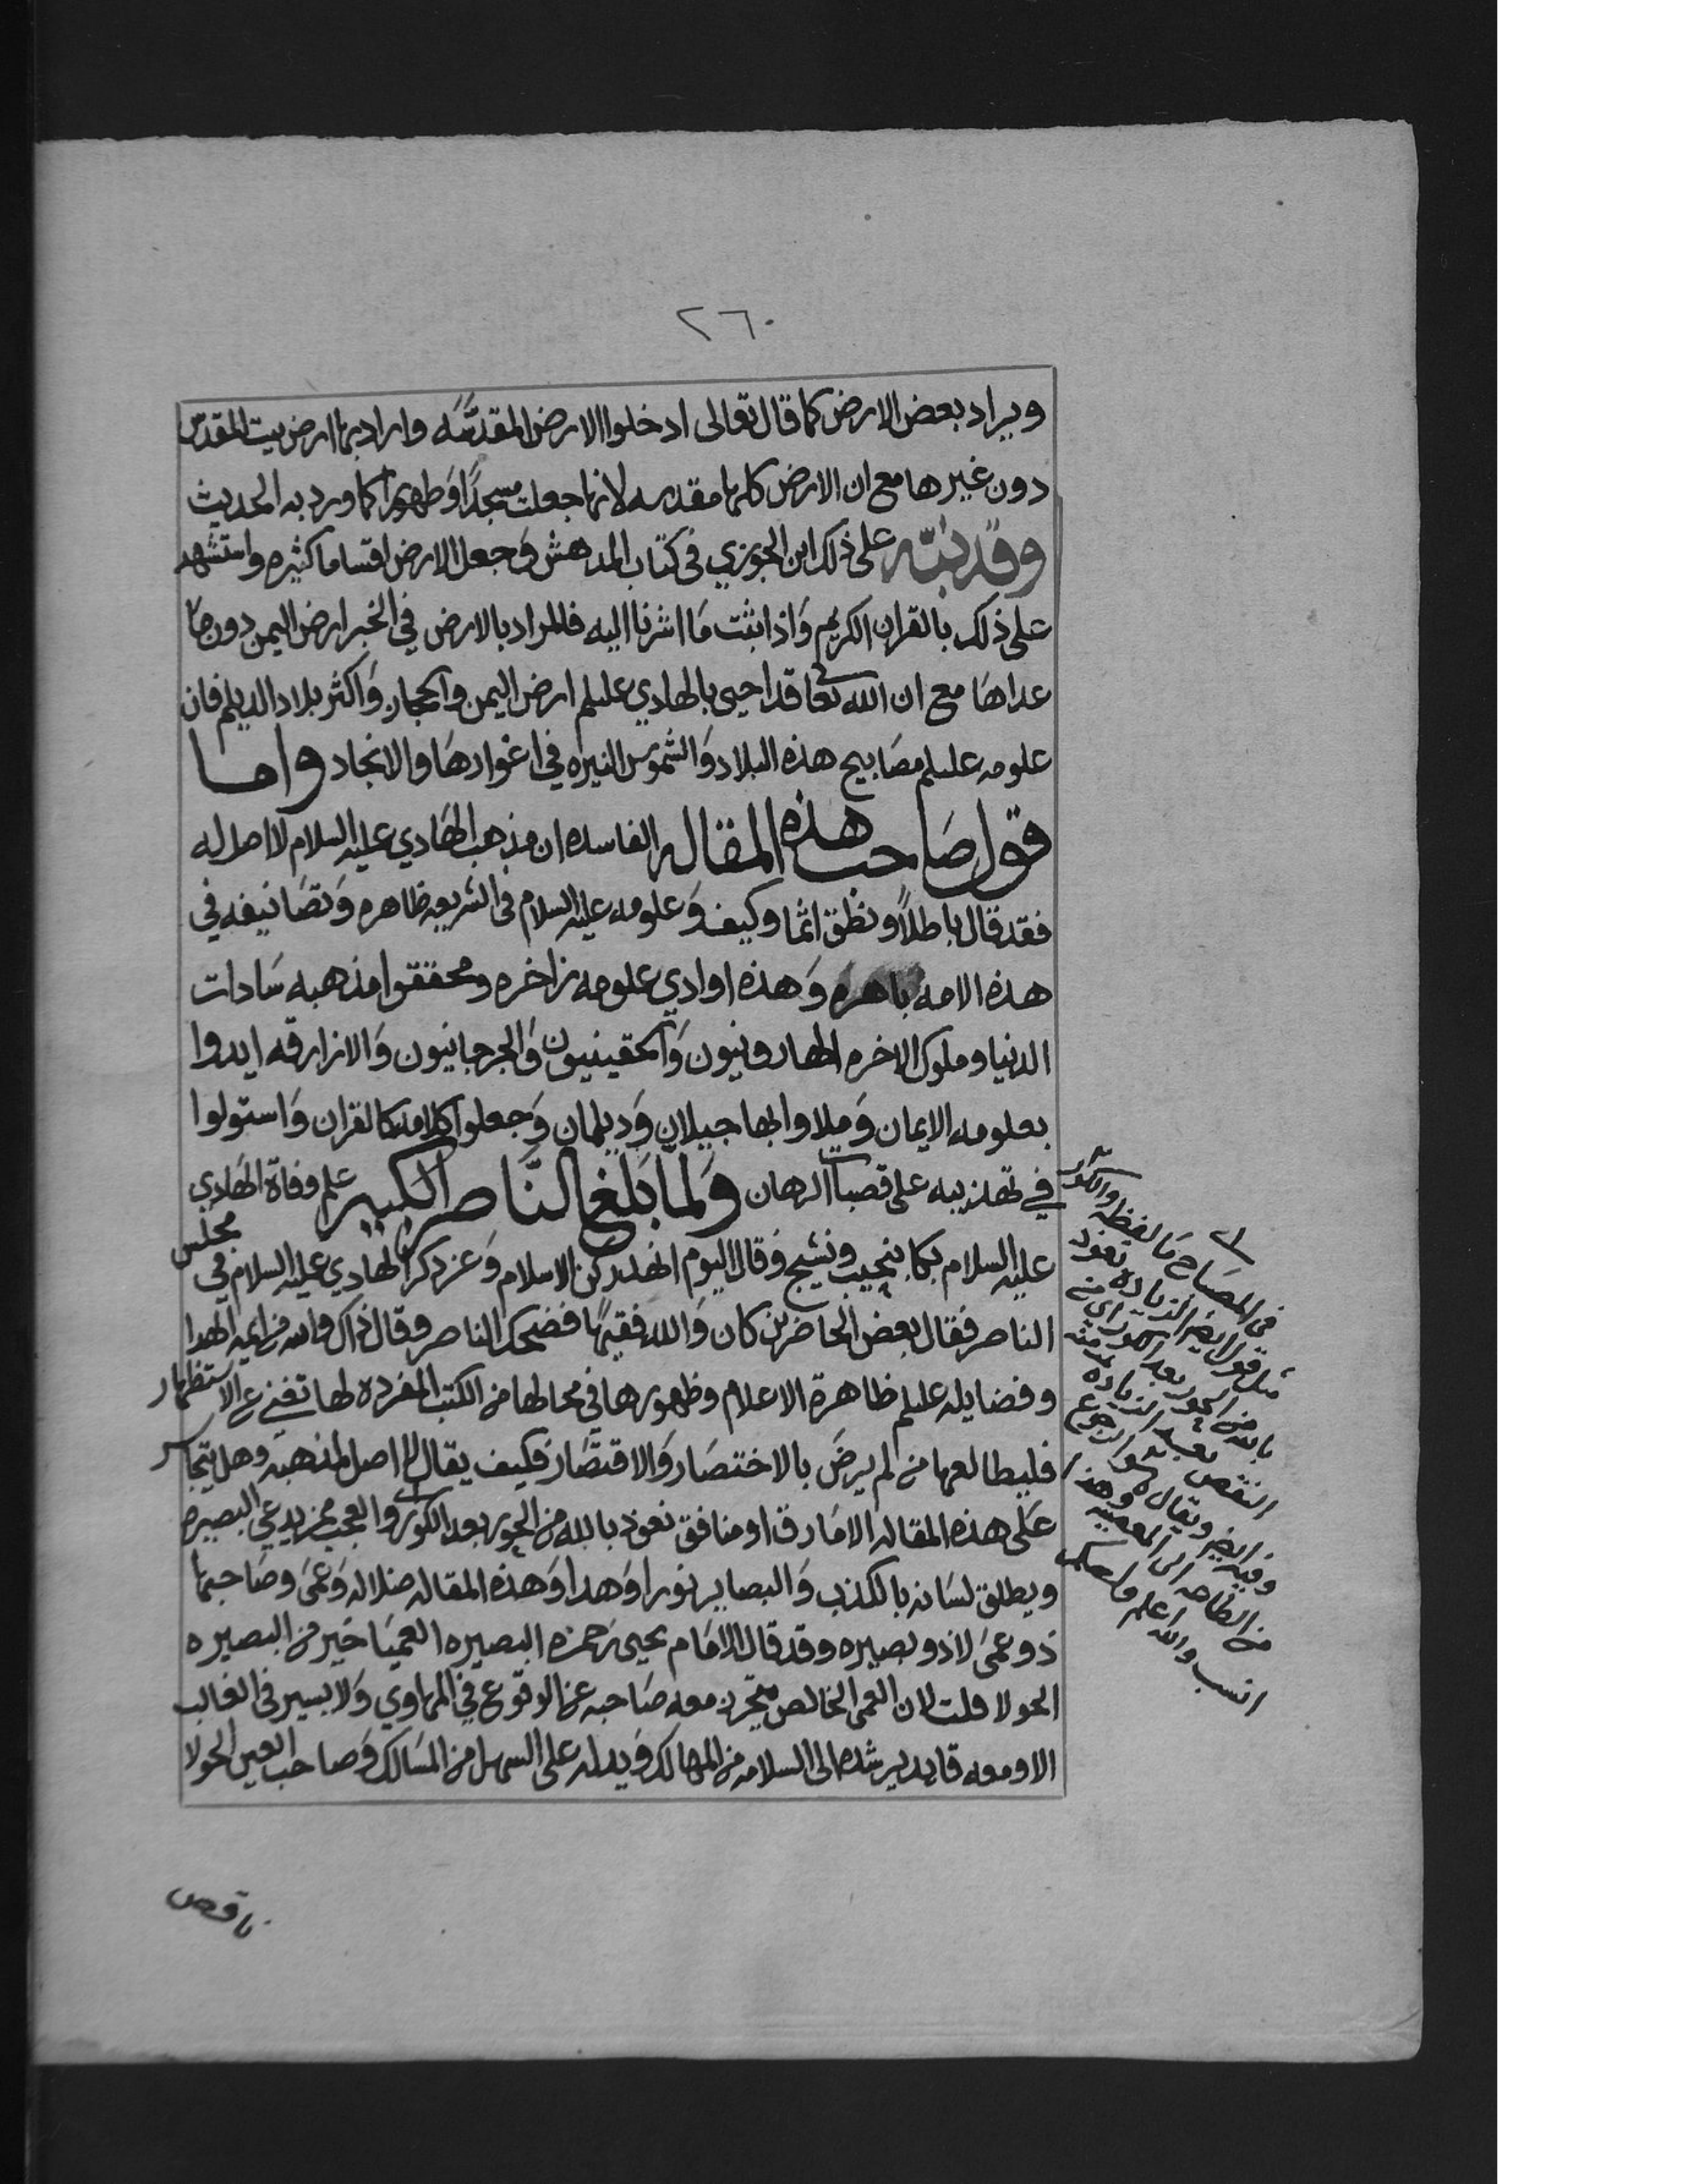 ٢٦٠
ويراد بعض الارض كما قال تعالى ادخلوا الارض المقدّسَه واراد بها ارض بيت المقدس
دون غيرها مع ان الارض كلها مقدسه لانها جعلت مسجدًا وَطهورًا كما ورد به الحديث
وقد نبّه على ذلك ابن الجوزي في كتاب المدهش وَجعل الارض اقساما كثيره واستشهد
على ذلك بالقران الكريم وَاذا ثبت مَا اشرنا اليه فالمراد بالارض في الخبر ارض اليمن دون مَا
عداهَا مع ان الله تعا قد احيى بالهادي عليلم ارض اليمن والحجاز وَاكثر بلاد الديلم فان
علومه عليلم مصَابيح هذه البلاد وَالشموس النيره في اغوارهَا والانجاد واما
قول صَاحب هذه المقاله الفاسده ان مذهب الهَادي عليه السلام لا اصل له
فقد قال باطلاً ونطق اثما وكيف وَعلومه عليه السلام في الشريعه ظاهره وَتصَانيفه في
هذه الامه باهره وَهذه اوادي علومه زاخره ومحققوا مذهبه سَادات
الدنيا وملوك الاخره الهارونيون وَالحقينيون وَالجرجانيون وَالازارقه ايدوا
بعلومه الايمان وَملاوا بها جيلان وَديلمان وَجعلوا كلامه كالقران وَاستولوا
في تهذيبه على قصبات الرهان وَلما بَلغ النّاصر الكبير علم وفاة الهَادي
عليه السلام بكا بنحيب ونشيج وَقال اليوم انهد ركن الاسلام وَعن ذكر الهادي عليه السلام في مجلس
الناصر فقال بعض الحاضرين كان وَالله فقيهًا فضحك الناصر وقال ذاك والله من ايمه الهدا
وفضايله عليلم ظاهرة الاعلام وظهورها في محالها من الكتب المفرده لها تغني عن الاستظهار
فليطالعها من لم يرضَ بالاختصَار وَالاقتصَار فكيف يقال لا اصل لمذهبه وهل يتجاسر
عَلى هذه المقاله الا مَارق او منافق نعوذ بالله من الحور بعد الكور والعجب ممن يدعي البصيره
ويطلق لسَانه بالكذب وَالبصاير نورا وَهدا وَهذه المقاله ضلاله وَعمَى وصَاحبها
ذو عمَى لا ذو بصيره وقد قال الامَام يحيى بن حمزه البصيره العميَا خير من البصيره
الحولا قلت لان العمى الخالص يتحرز معه صَاحبه عن الوقوع في المهاوي وَلا يسير في الغالب
الا ومعه قايد يرشده الى السلامه من المهالك وَيدله على السهل من المسَالك وَصاحب العين الحولا
في المصَباح مَا لفظه والكور
مثل قول ايضا الزياده نعوذ
بالله من الحور بعد الكور اي من
النقص بعد الزياده
وفيه ايضا ويقال هو الرجوع
من الطاعه الى المعصيه وهذا
انسب والله اعلم
ناقص